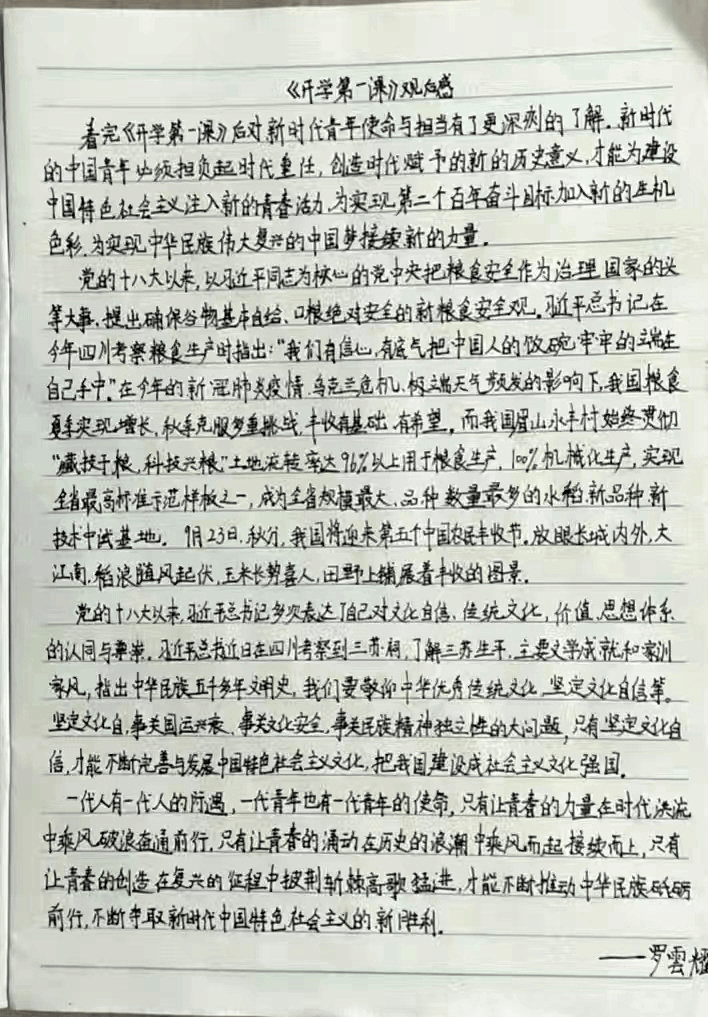 《开学第一课》观后感
看完《开学第一课》后对新时代青年使命与担当有了更深刻的了解。新时代
的中国青年必须担负起时代重任,创造时代赋予的新的历史意义,才能为建设
中国特色社会主义注入新的青春活力,为实现第二个百年奋斗目标加入新的生机
色彩,为实现中华民族伟大复兴的中国梦接续新的力量。
党的十八大以来,以习近平同志为核心的党中央把粮食安全作为治理国家的头
等大事,提出确保谷物基本自给、口粮绝对安全的新粮食安全观。习近平总书记在
今年四川考察粮食生产时指出:“我们有信心,有底气把中国人的饭碗牢牢的端在
自己手中”。在今年的新冠肺炎疫情,乌克兰危机,极端天气频发的影响下,我国粮食
夏季实现增长,秋季克服多重挑战,丰收有基础,有希望。而我国眉山永丰村始终贯彻
“藏技于粮,科技兴粮”土地流转率达96%以上用于粮食生产,100%机械化生产,实现
全省最高标准示范样板之一,成为全省规模最大、品种数量最多的水稻新品种新
技术中试基地。9月23日,秋分,我国将迎来第五个中国农民丰收节。放眼长城内外,大
江南,稻浪随风起伏,玉米长势喜人,田野上铺展着丰收的图景。
党的十八大以来,习近平总书记多次表达了自己对文化自信、传统文化,价值,思想体系
的认同与尊崇。习近平总书近日在四川考察到三苏祠,了解三苏生平,主要文学成就和家训
家风,指出中华民族五千多年文明史,我们要敬仰中华优秀传统文化,坚定文化自信等。
坚定文化自,事关国运兴衰、事关文化安全,事关民族精神独立性的大问题,只有坚定文化自
信,才能不断完善与发展中国特色社会主义文化,把我国建设成社会主义文化强国。
一代人有一代人的际遇,一代青年也有一代青年的使命,只有让青春的力量在时代洪流
中乘风破浪奋涌前行,只有让青春的涌动在历史的浪潮中乘风而起接续而上,只有
让青春的创造在复兴的征程中披荆斩棘高歌猛进,才能不断推动中华民族砥砺
前行,不断夺取新时代中国特色社会主义的新胜利。
——罗雲耀